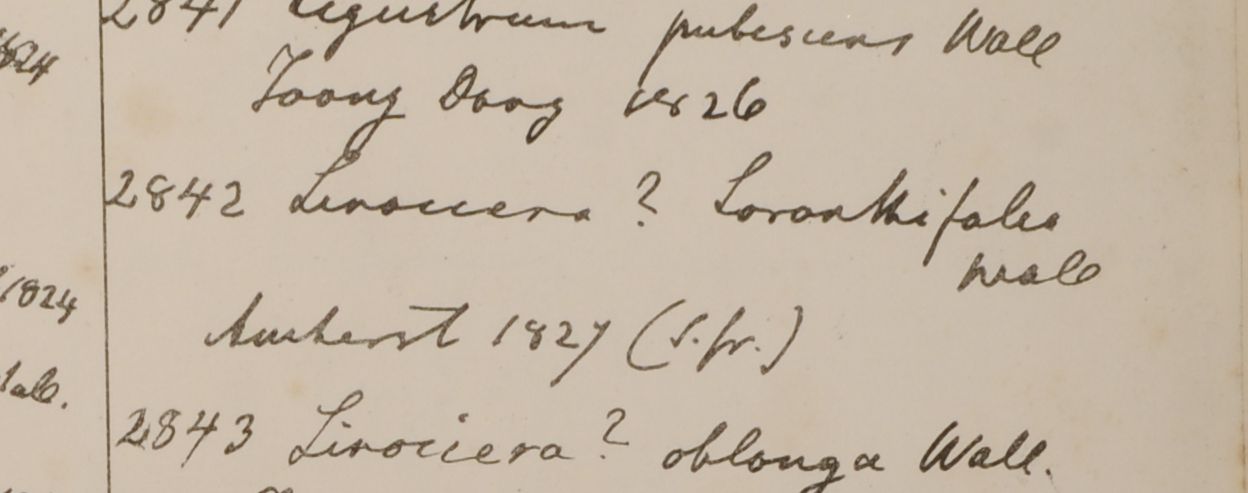 1824
1824
Wall.
2841 Ligustrum pubescens Wall
Toong Dong 1826
2842 Linociera ? Loranthifolia
Wall
Amherst 1827 (s.fr.)
2843 Linociera ? oblonga Wall.